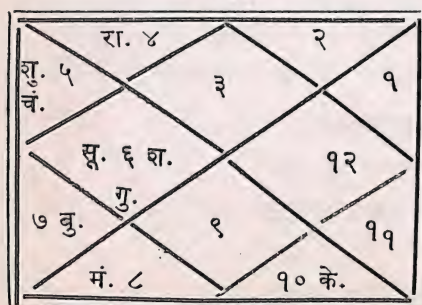 रा. ४
२
शु. ५
चं.
३
१
सू. ६ श.
गु.
१२
७ बु.
९
११
मं. ८
१० के.